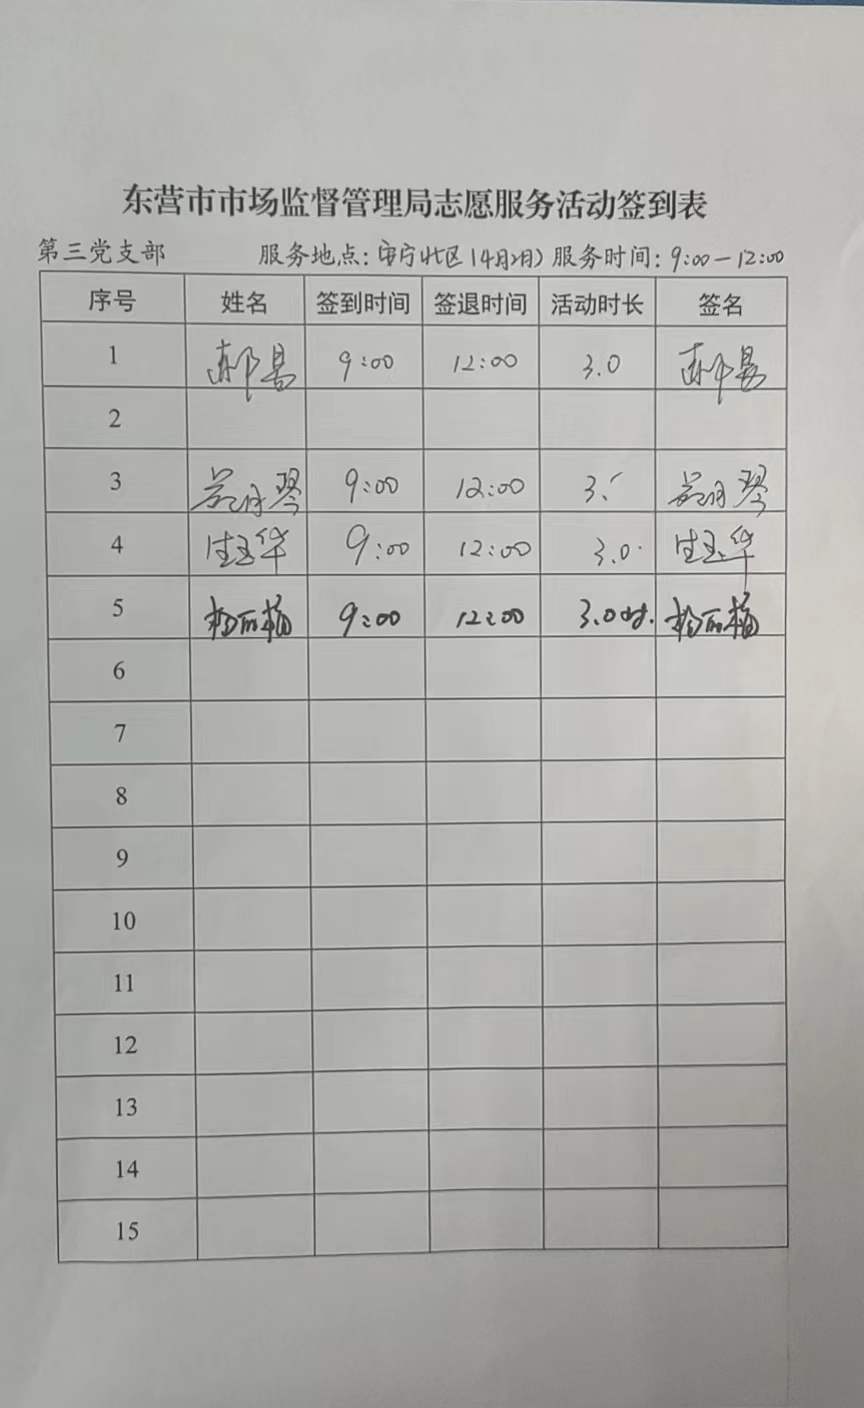 东营市市场监督管理局志愿服务活动签到表
第三党支部 服务地点：安宁北区（4月2日）服务时间：9:00—12:00
序号 姓名 签到时间 签退时间 活动时长 签名
1 郝昜 9:00 12:00 3.0 郝昜
2
3 琴 9:00 12:00 3. 琴
4 生玉华 9:00 12:00 3.0 生玉华
5 杨丽梅 9:00 12:00 3.0时. 杨丽梅
6
7
8
9
10
11
12
13
14
15